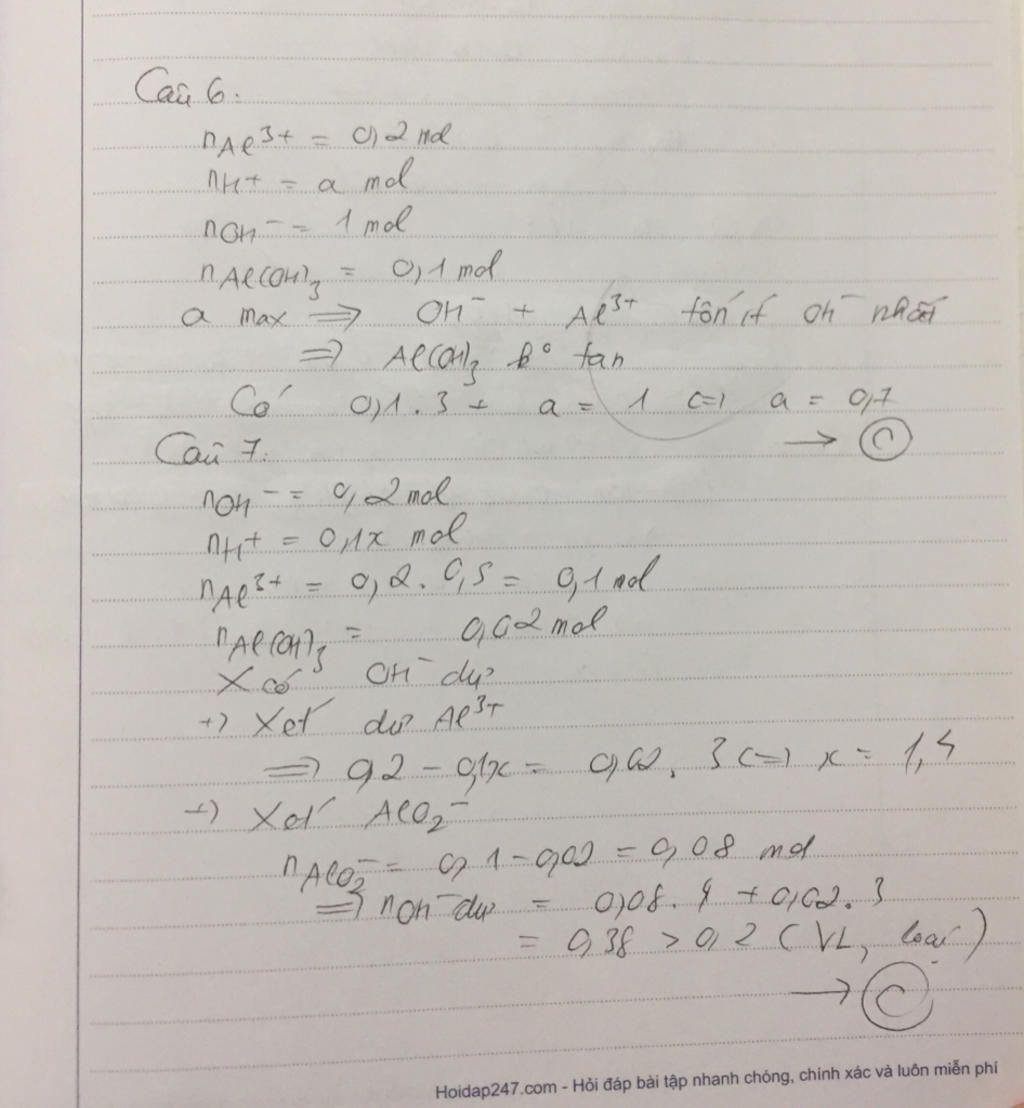 Câu 6.
nAl3+ = 0,2 mol
nH+ = a mol
nOH- = 1 mol
nAl(OH)3 = 0,1 mol
a max => OH- + Al3+ tốn ít OH- nhất
=> Al(OH)3 ko tan
Có 0,1.3 + a = 1 <=> a = 0,7
→ C
Câu 7.
nOH- = 0,2 mol
nH+ = 0,1x mol
nAl3+ = 0,2.0,5 = 0,1 mol
nAl(OH)3 = 0,02 mol
X có OH- dư
+) Xét dư Al3+
=> 0,2 - 0,1x = 0,02.3 <=> x = 1,4
+) Xét AlO2-
nAlO2- = 0,1 - 0,02 = 0,08 mol
=> nOH- dư = 0,08.4 + 0,02.3
= 0,38 > 0,2 (VL, loại)
→ C
Hoidap247.com - Hỏi đáp bài tập nhanh chóng, chính xác và luôn miễn phí